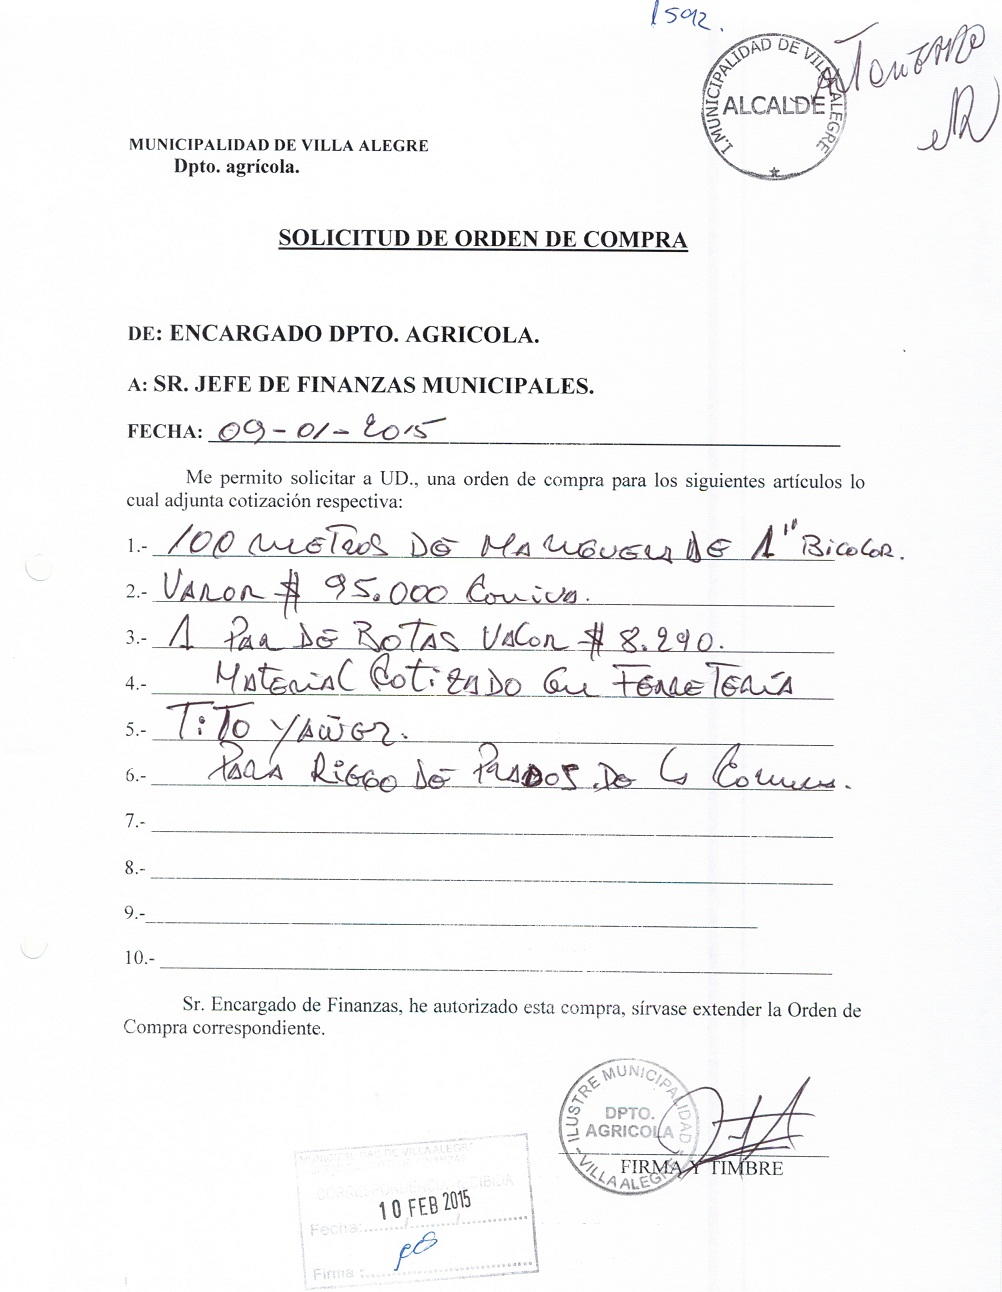 1592.
I. MUNICIPALIDAD DE VILLA ALEGRE
ALCALDE
MUNICIPALIDAD DE VILLA ALEGRE
Dpto. agrícola.
SOLICITUD DE ORDEN DE COMPRA
DE: ENCARGADO DPTO. AGRICOLA.
A: SR. JEFE DE FINANZAS MUNICIPALES.
FECHA: 09-01-2015
Me permito solicitar a UD., una orden de compra para los siguientes artículos lo
cual adjunta cotización respectiva:
1.- 100 METROS DE MANGUERA DE 1" BICOLOR.
2.- VALOR $ 95.000 Con iva.
3.- 1 PAR DE BOTAS VALOR $ 8.290.
4.- MATERIAL COTIZADO EN FERRETERÍA
5.- TITO YAÑEZ.
6.- PARA RIEGO DE PRADOS DE LA Comuna.
7.-
8.-
9.-
10.-
Sr. Encargado de Finanzas, he autorizado esta compra, sírvase extender la Orden de
Compra correspondiente.
ILUSTRE MUNICIPALIDAD
DPTO.
AGRICOLA
VILLA ALEGRE
FIRMA Y TIMBRE
MUNICIPALIDAD DE VILLA ALEGRE
CORRESPONDENCIA RECIBIDA
10 FEB 2015
Fecha:......./......./.......
Firma :